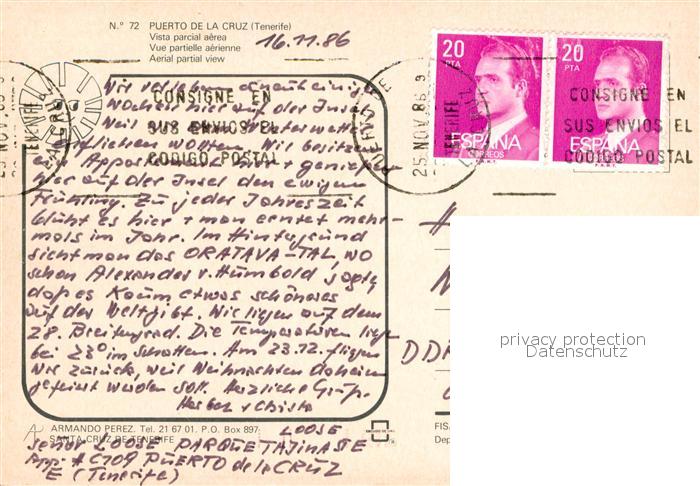 N.º 72 PUERTO DE LA CRUZ (Tenerife)
Vista parcial aérea
Vue partielle aérienne
Aerial partial view
16.11.86
20 PTA
20 PTA
ESPAÑA
CORREOS
ESPAÑA
CONSIGNE EN
SUS ENVIOS EL
CODIGO POSTAL
25 NOV. 86
TENERIFE
CONSIGNE EN
SUS ENVIOS EL
CODIGO POSTAL
Wir
Wochen hier auf der Insel
Weil wir
wollten. Wir besitzen
hier auf der Insel den ewigen
Frühling. Zu jeder Jahreszeit
blüht es hier + man erntet mehr-
mals im Jahr. Im Hintergrund
sieht man das ORATAVA-TAL, wo
schon Alexander v. Humbold sagte,
daß es kaum etwas schöneres
auf der Welt gibt. Wir liegen auf dem
28. Breitengrad. Die Temperaturen liegen
bei 23° im Schatten. Am 23.12. fliegen
wir zurück, weil Weihnachten daheim
gefeiert werden soll. Herzliche Grüße
Herbert + Christa
LOOSE
DDR
privacy protection
Datenschutz
ARMANDO PEREZ. Tel. 21 67 01. P.O. Box 897.
SANTA CRUZ DE TENERIFE
señor LOOSE PARQUE TAJINASTE
App. # C109 PUERTO de la CRUZ
E (Tenerife)
FIS
Dep